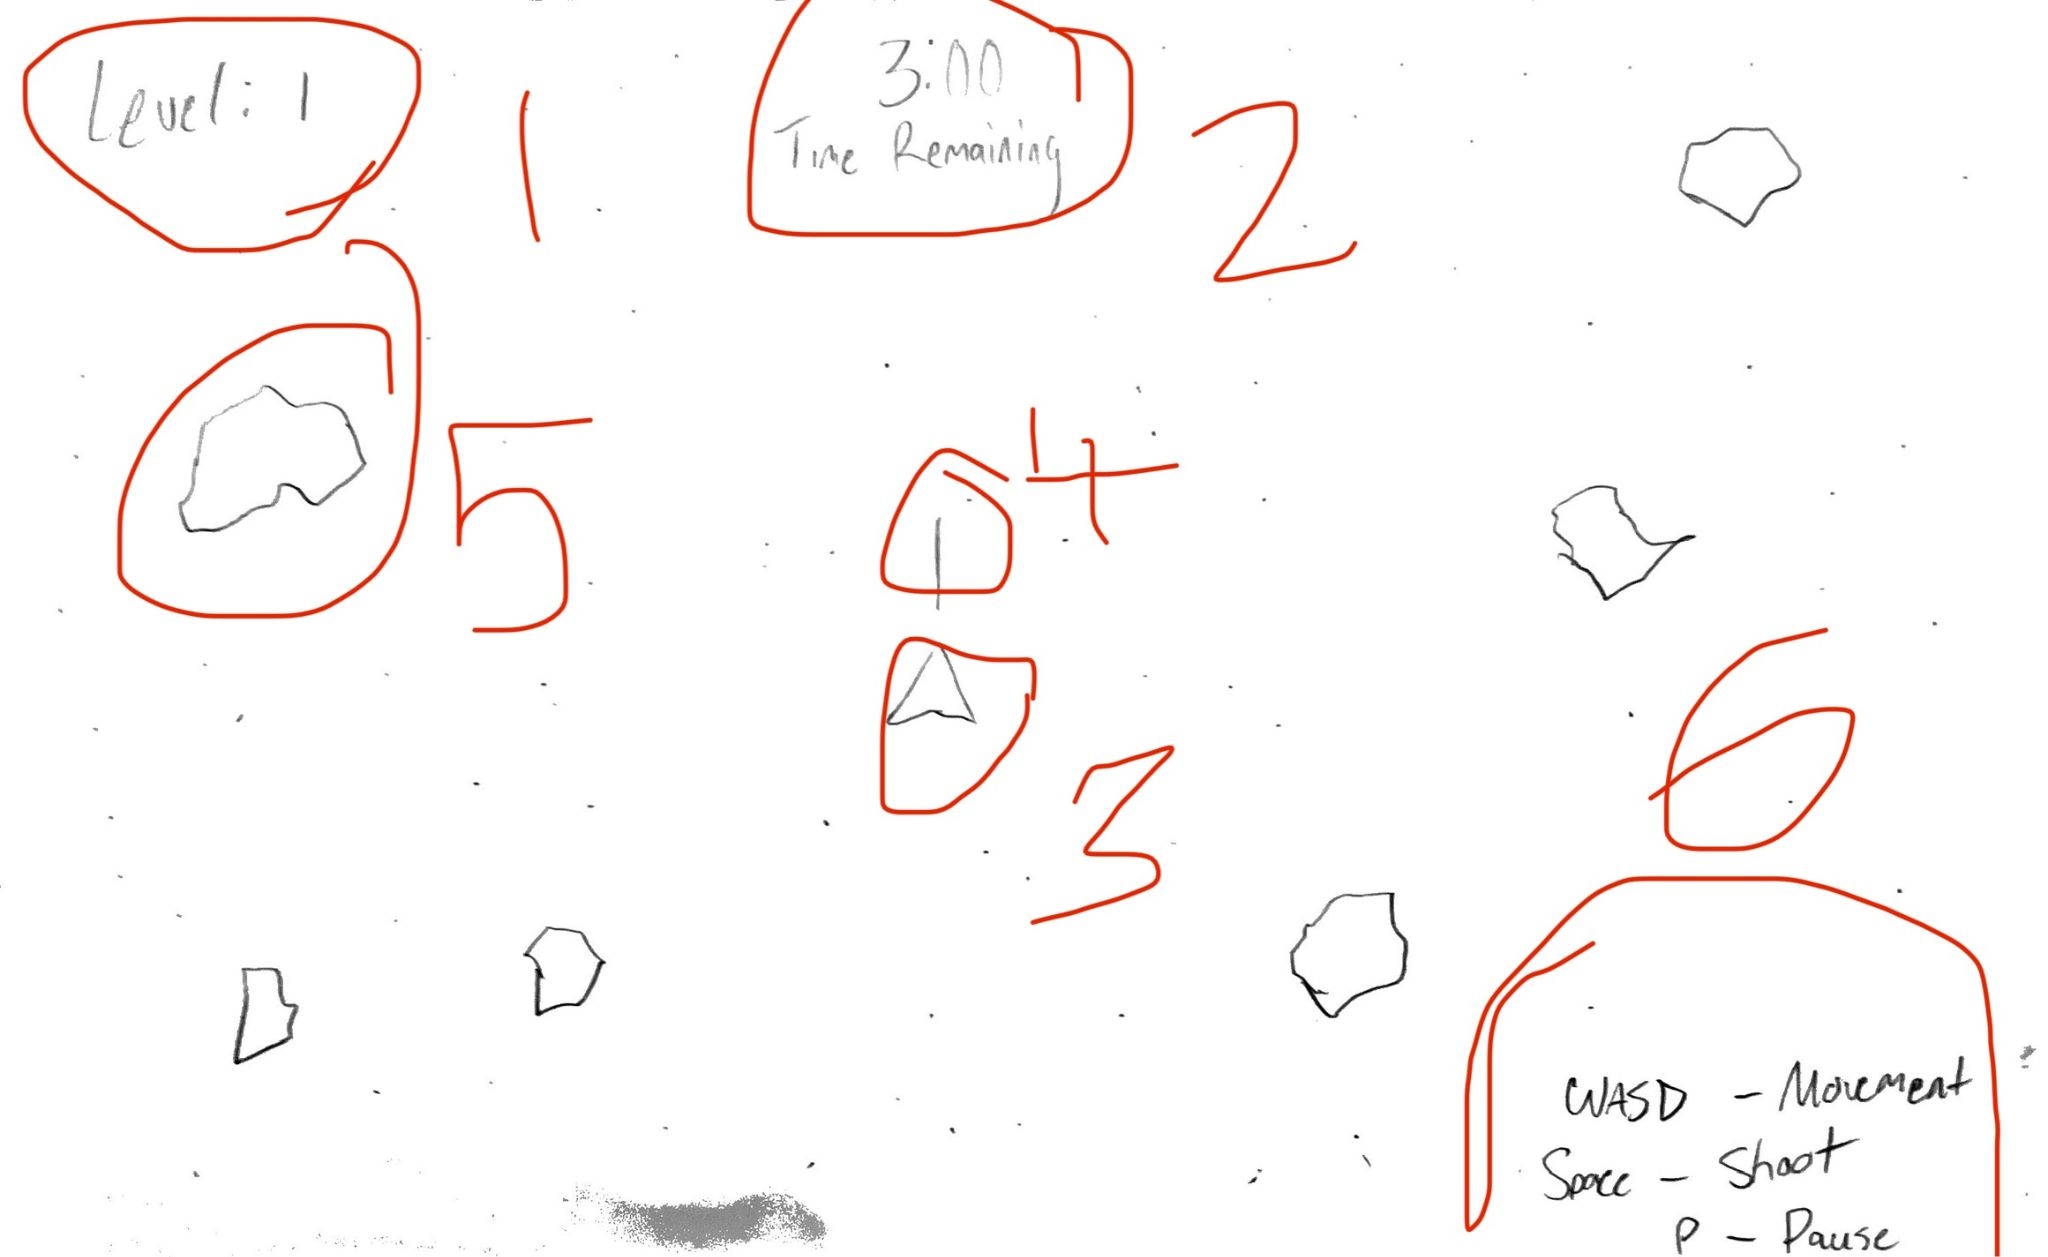 Level: 1
1
3:00
Time Remaining
2
5
4
3
6
WASD - Movement
Space - Shoot
P - Pause